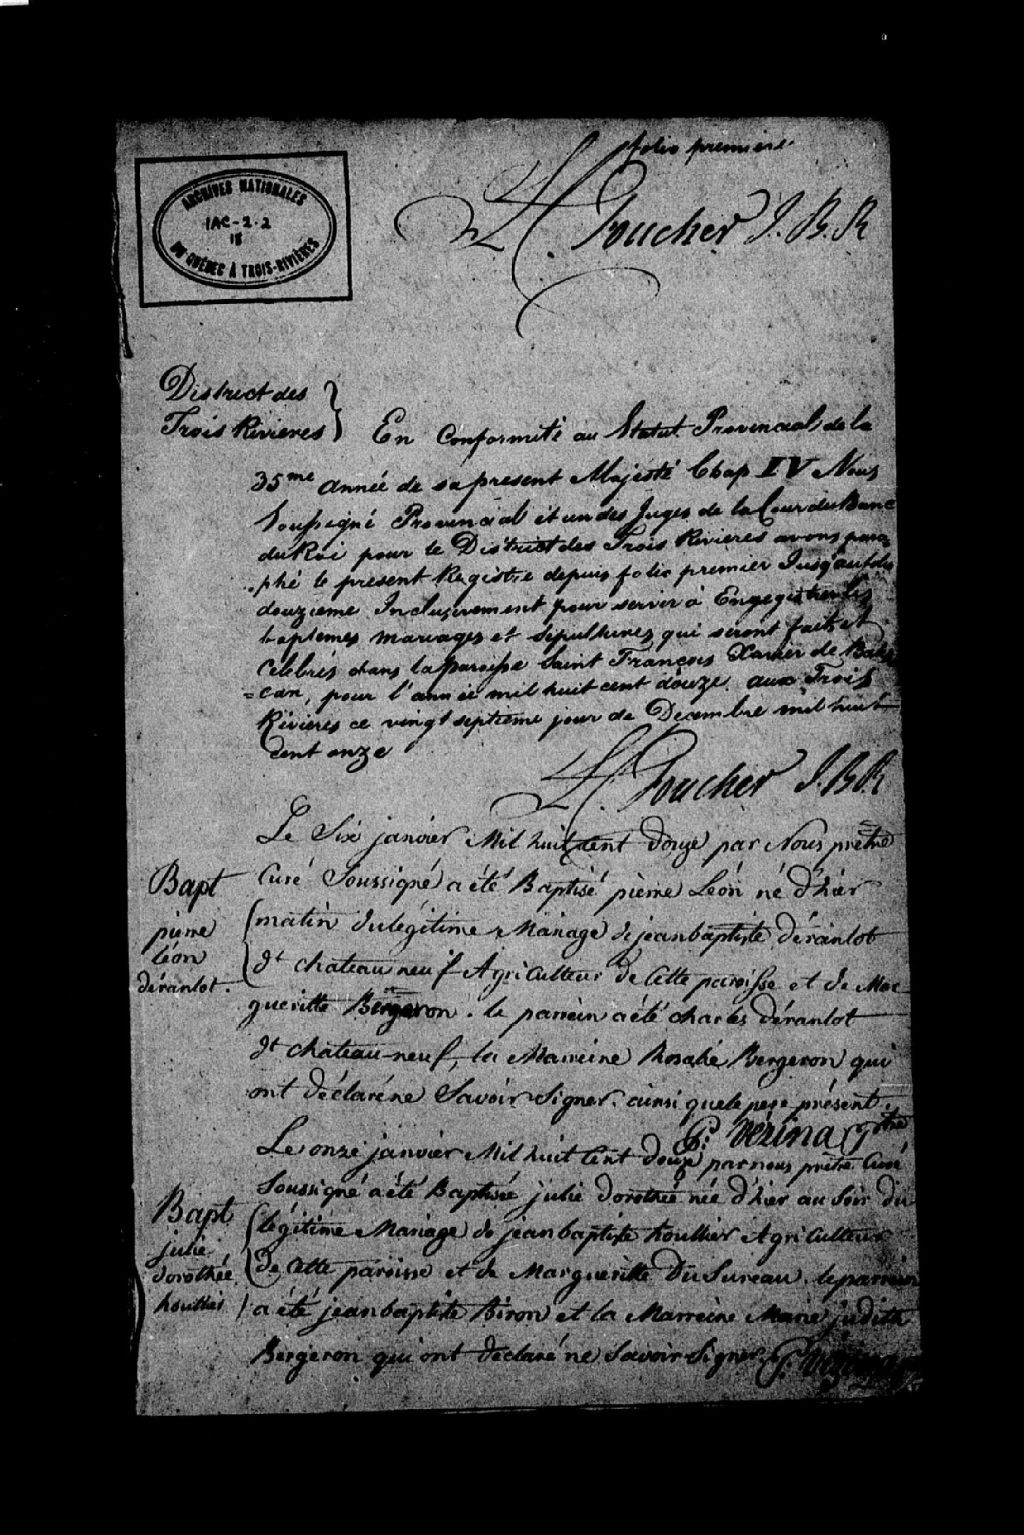 folio premiere
L. Foucher J. B. R
ARCHIVES NATIONALES
IAC-2-2
15
DU QUÉBEC À TROIS-RIVIÈRES
District des
Trois Rivieres
En Conformité au Statut Provincial de la
35me année de sa present Majesté Chap IV Nous
Soussigné Provincial et un des Juges de la Cour du Banc
du Roi pour le District des Trois Rivieres avons para
-phé le present Registre depuis folio premier Jusqu'au folio
douzieme Inclusivement pour servir à Enregistrer les
baptemes mariages et sepultures qui seront faits et
Celebrés dans la paroisse Saint François Xavier de Batis
=can, pour l'année mil huit cent douze. aux Trois
Rivieres ce vingt septieme jour de Decembre mil huit
Cent onze
L. Foucher J. B. R
Le Six janvier Mil huit cent douze par Nous prêtre
Curé Soussigné a été Baptisé pierre Léon né d'hier
matin du légitime Mariage de jean baptiste déranlot
dt chateauneuf Agriculteur de Cette paroisse et de Mar
gueritte Bergeron. le parrein a été charles déranlot
dt chateau-neuf, la Marreine Rosalie Bergeron qui
ont déclaré ne Savoir Signer. ainsi que le pere présent.
P: Vézina ptre
Bapt
pierre
léon
déranlot.
Le onze janvier Mil huit Cent douze par nous prêtre Curé
Soussigné a été Baptisée julie dorothée née d'hier au Soir du
légitime Mariage de jean baptiste houllier Agriculteur
de Cette paroisse et de Margueritte Du Sureau. le parrein
a été jean baptiste Biron et la Marreine Marie judith
Bergeron qui ont déclaré ne Savoir Signer P: Vézina
Bapt
julie
dorothée
houllier